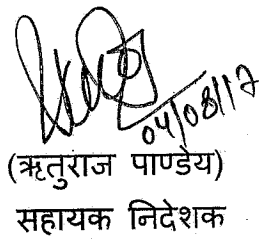 04/08/17
(ऋतुराज पाण्डेय)
सहायक निदेशक